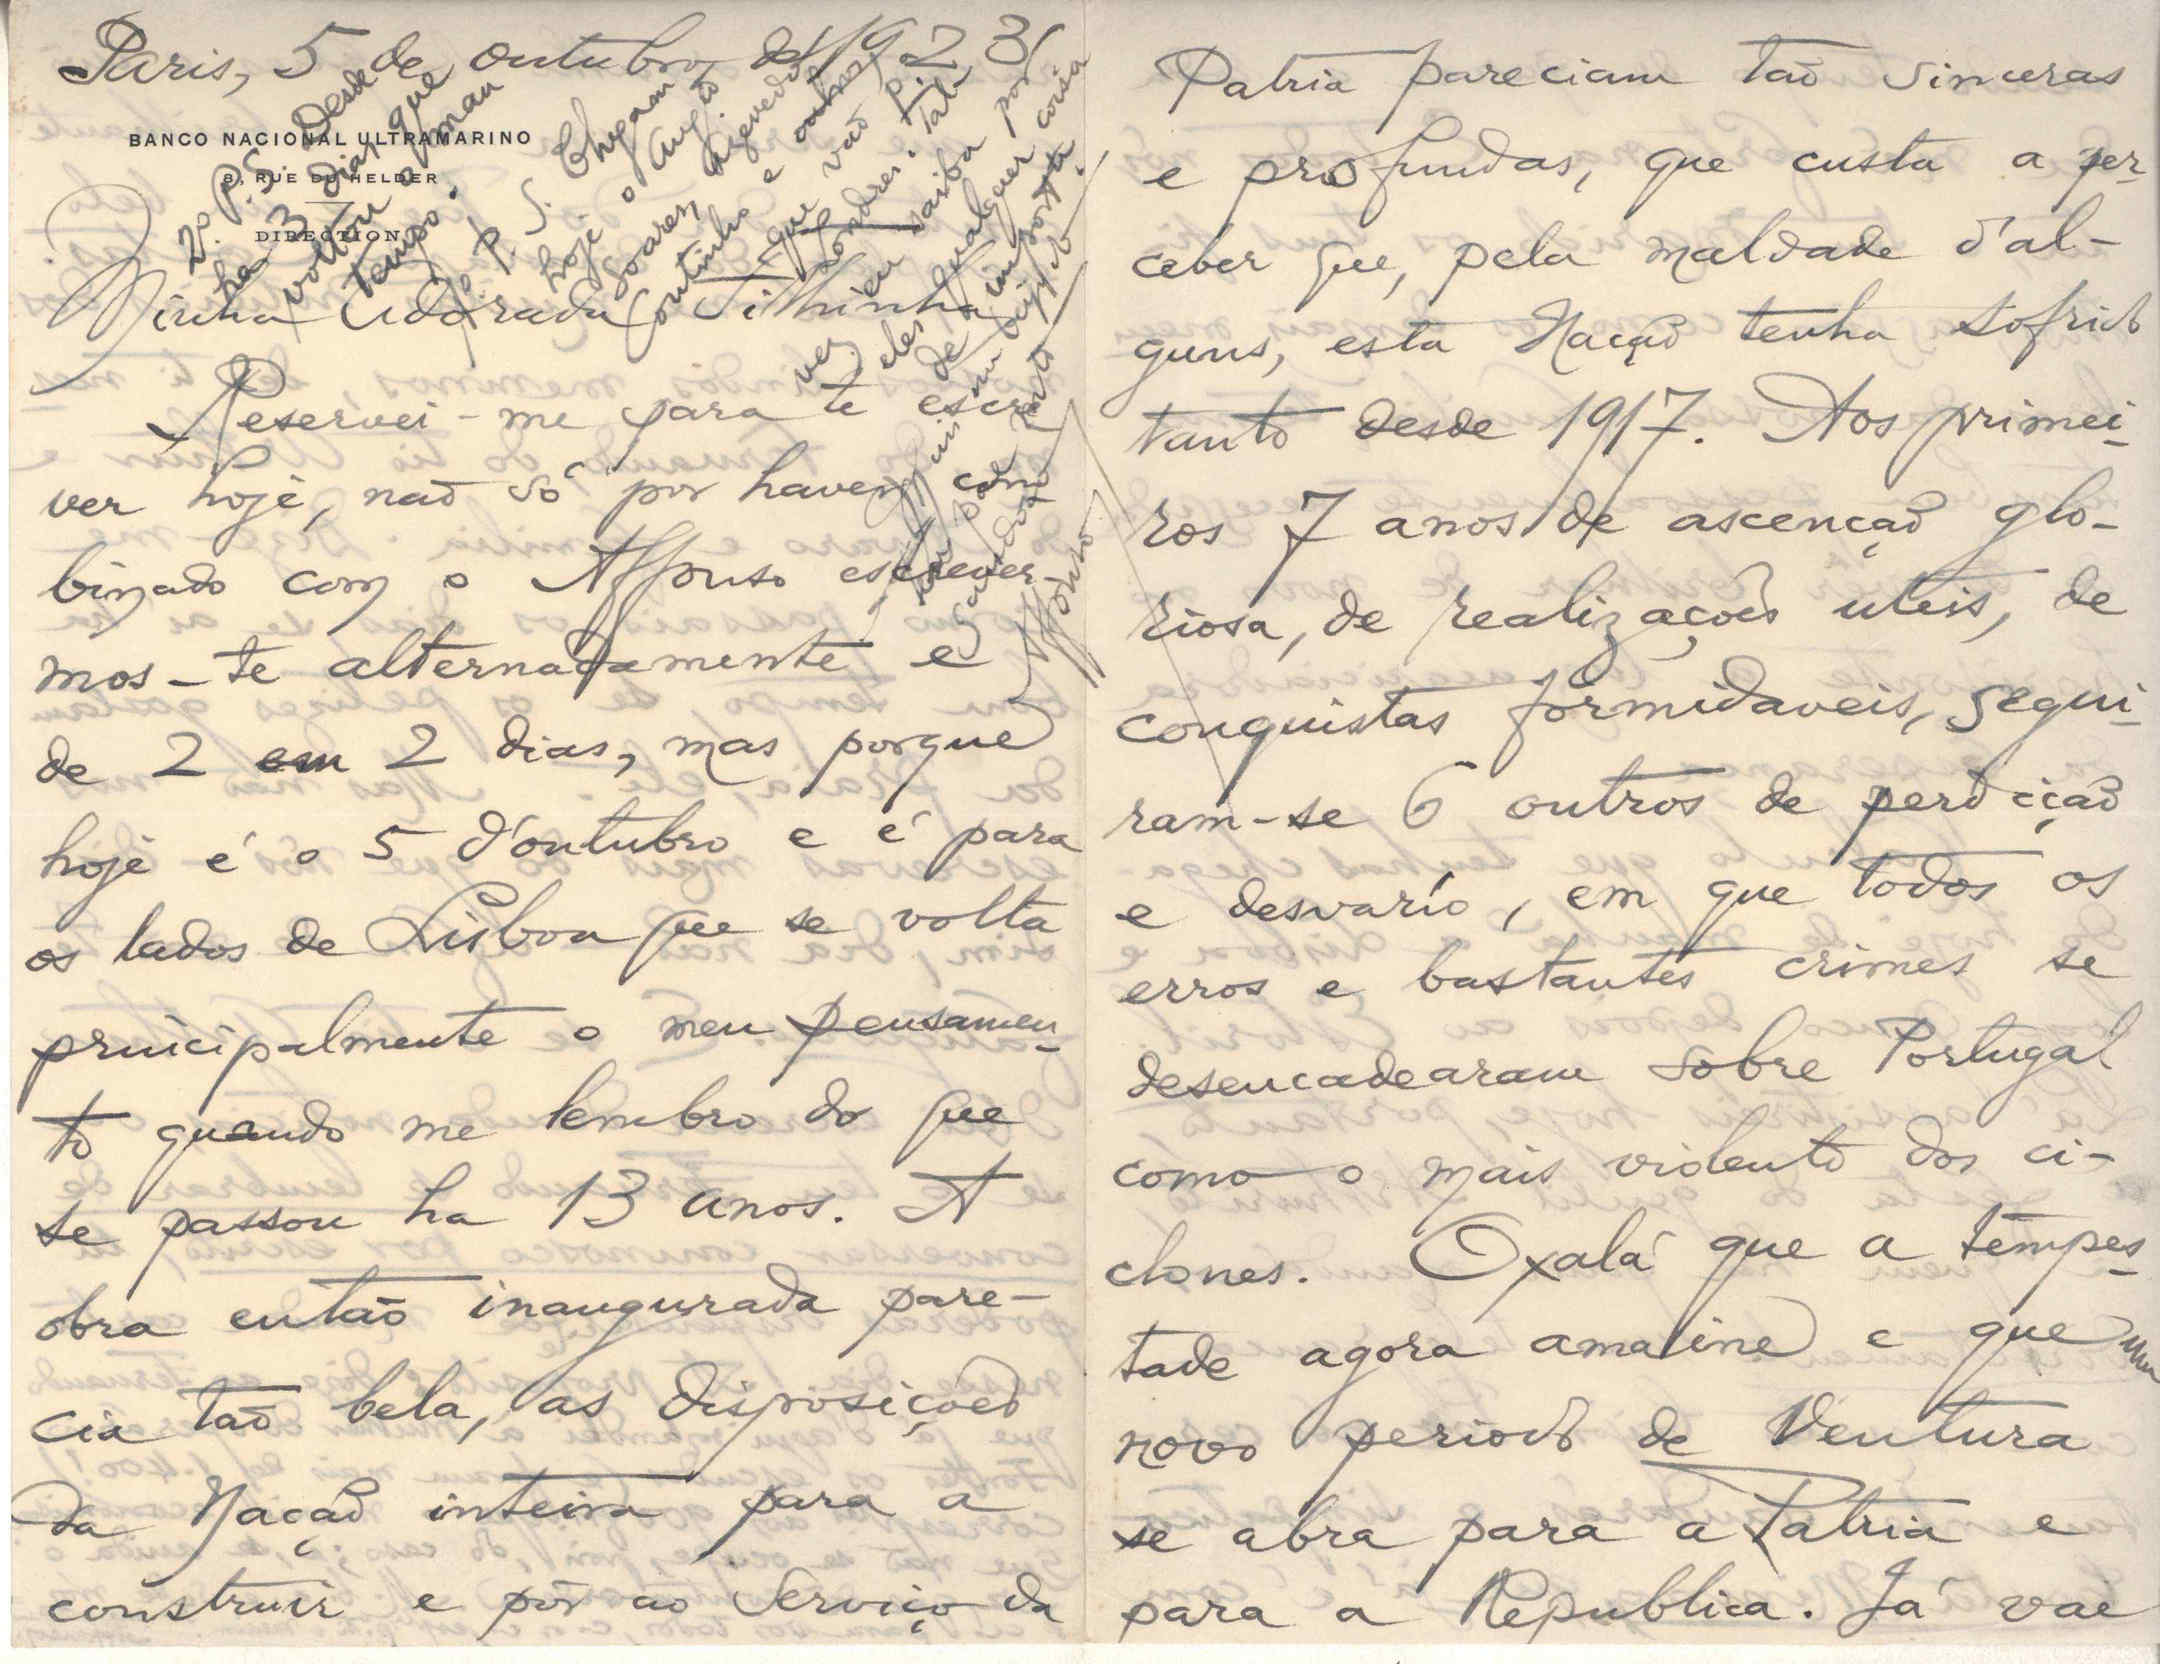 Paris, 5 de outubro de 1923
BANCO NACIONAL ULTRAMARINO
8, RUE DU HELDER
DIRECTION
Minha Adorada Filhinha
Reservei-me para te escre
ver hoje, não só por haver com
binado com o Affonso escrever-
mos-te alternadamente e
de 2 em 2 dias, mas porque
hoje é o 5 d'outubro e é para
os lados de Lisboa que se volta
principalmente o meu pensamen-
to quando me lembro do que
se passou ha 13 anos. A
obra então inaugurada pare-
cia tão bela, as disposições
da Nação inteira para a
construir e pôr ao serviço da
Patria pareciam tão sinceras
e profundas, que custa a per-
ceber que, pela maldade d'al-
guns, esta Nação tenha sofrido
tanto desde 1917. Aos primei-
ros 7 anos de ascenção glo-
riosa, de realizações uteis, de
conquistas formidaveis, segui-
ram-se 6 outros de perdição
e desvario, em que todos os
erros e bastantes crimes se
desencadearam sobre Portugal
como o mais violento dos ci-
clones. Oxalá que a tempes-
tade agora amaine e que um
novo periodo de Ventura
se abra para a Patria e
para a Republica. Já vai
P. S. Chegaram
hoje o Augto
Soares, Azevedo
Coutinho e outros
que vão p.
Londres. Tal-
vez eu saiba por
eles qualquer coisa
de importte.
Saudades
Affonso
2º P. S. Desde
ha 3 dias que
voltou o mau
tempo.